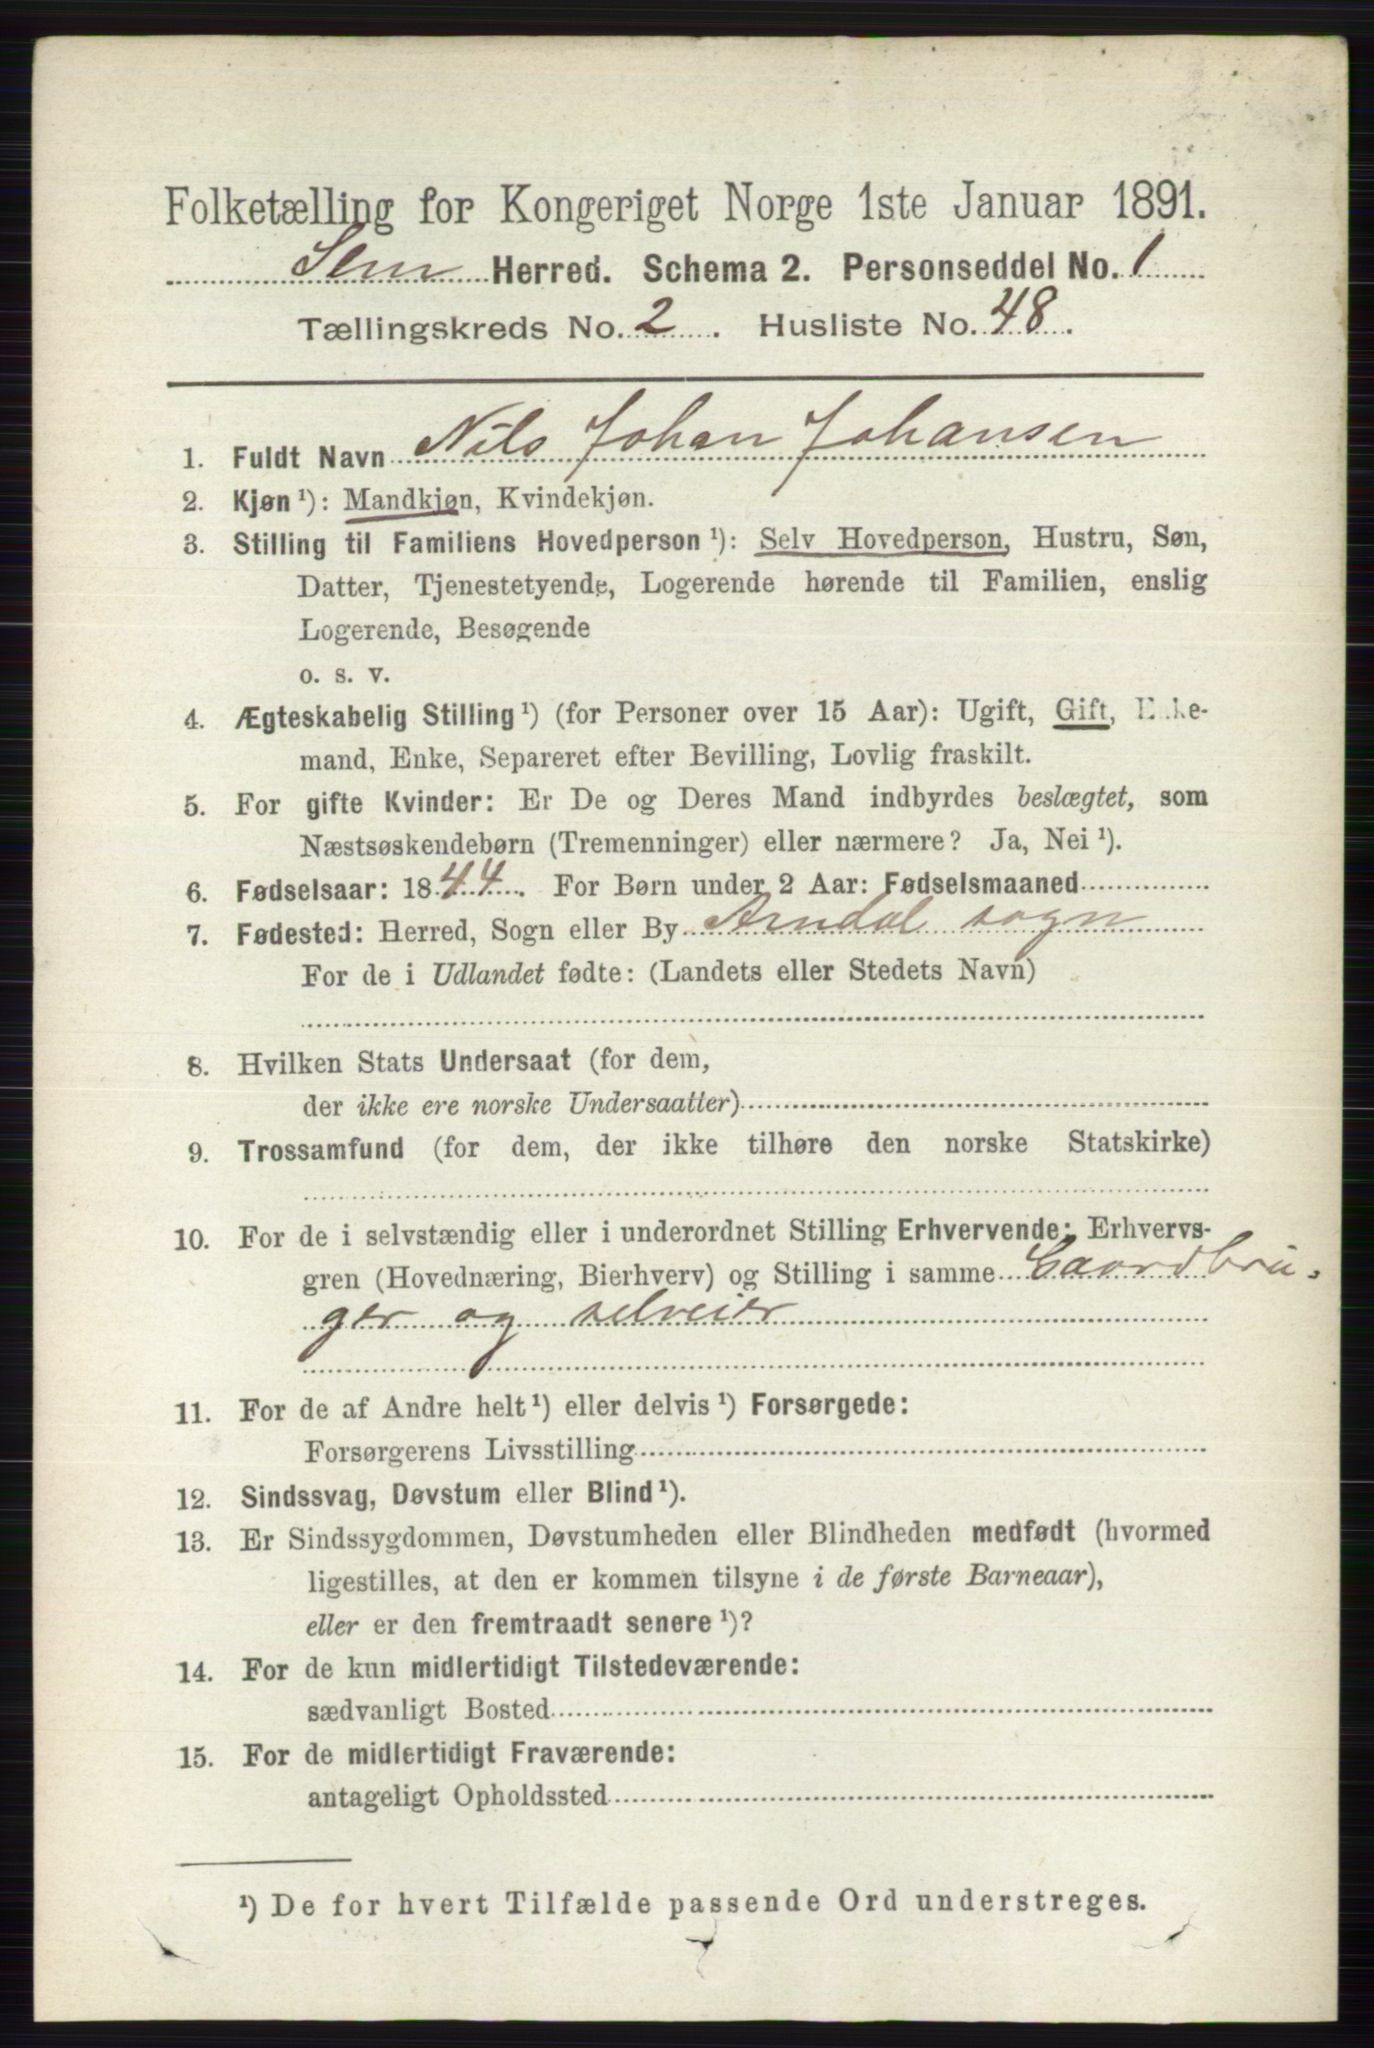 Folketælling for Kongeriget Norge 1ste Januar 1891.
Sem Herred. Schema 2. Personseddel No. 1
Tællingskreds No. 2. Husliste No. 48.
1. Fuldt Navn Nils Johan Johansen
2. Kjøn ¹): Mandkjøn, Kvindekjøn.
3. Stilling til Familiens Hovedperson ¹): Selv Hovedperson, Hustru, Søn,
Datter, Tjenestetyende, Logerende hørende til Familien, enslig
Logerende, Besøgende
o. s. v.
4. Ægteskabelig Stilling ¹) (for Personer over 15 Aar): Ugift, Gift, Enke-
mand, Enke, Separeret efter Bevilling, Lovlig fraskilt.
5. For gifte Kvinder: Er De og Deres Mand indbyrdes beslægtet, som
Næstsøskendebørn (Tremenninger) eller nærmere? Ja, Nei ¹).
6. Fødselsaar: 1844. For Børn under 2 Aar: Fødselsmaaned
7. Fødested: Herred, Sogn eller By Arndal sogn
For de i Udlandet fødte: (Landets eller Stedets Navn)
8. Hvilken Stats Undersaat (for dem,
der ikke ere norske Undersaatter)
9. Trossamfund (for dem, der ikke tilhøre den norske Statskirke)
10. For de i selvstændig eller i underordnet Stilling Erhvervende: Erhvervs-
gren (Hovednæring, Bierhverv) og Stilling i samme Gaardbru-
ger og selveier
11. For de af Andre helt ¹) eller delvis ¹) Forsørgede:
Forsørgerens Livsstilling
12. Sindssvag, Døvstum eller Blind ¹).
13. Er Sindssygdommen, Døvstumheden eller Blindheden medfødt (hvormed
ligestilles, at den er kommen tilsyne i de første Barneaar),
eller er den fremtraadt senere ¹)?
14. For de kun midlertidigt Tilstedeværende:
sædvanligt Bosted
15. For de midlertidigt Fraværende:
antageligt Opholdssted
¹) De for hvert Tilfælde passende Ord understreges.